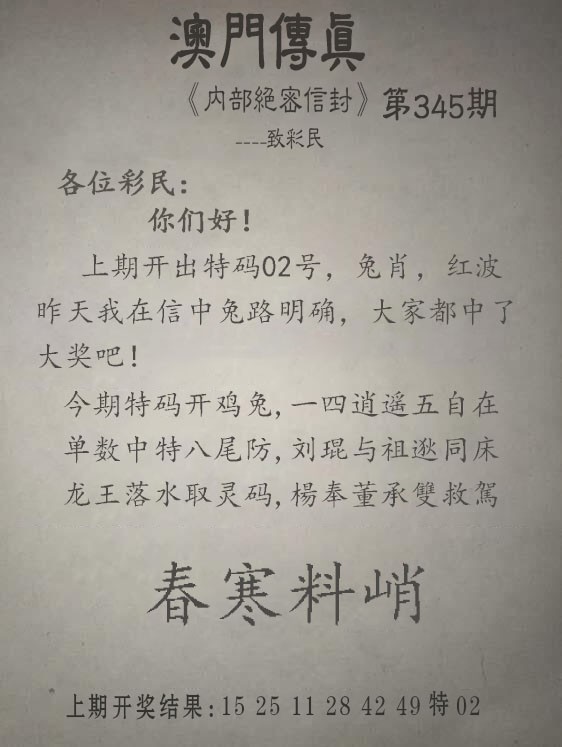 澳門傳真
《内部絕密信封》第345期
----致彩民
各位彩民：
你们好！
上期开出特码02号，兔肖，红波
昨天我在信中兔路明确，大家都中了
大奖吧！
今期特码开鸡兔,一四逍遥五自在
单数中特八尾防,刘琨与祖逖同床
龙王落水取灵码,楊奉董承雙救駕
春寒料峭
上期开奖结果:15 25 11 28 42 49 特 02